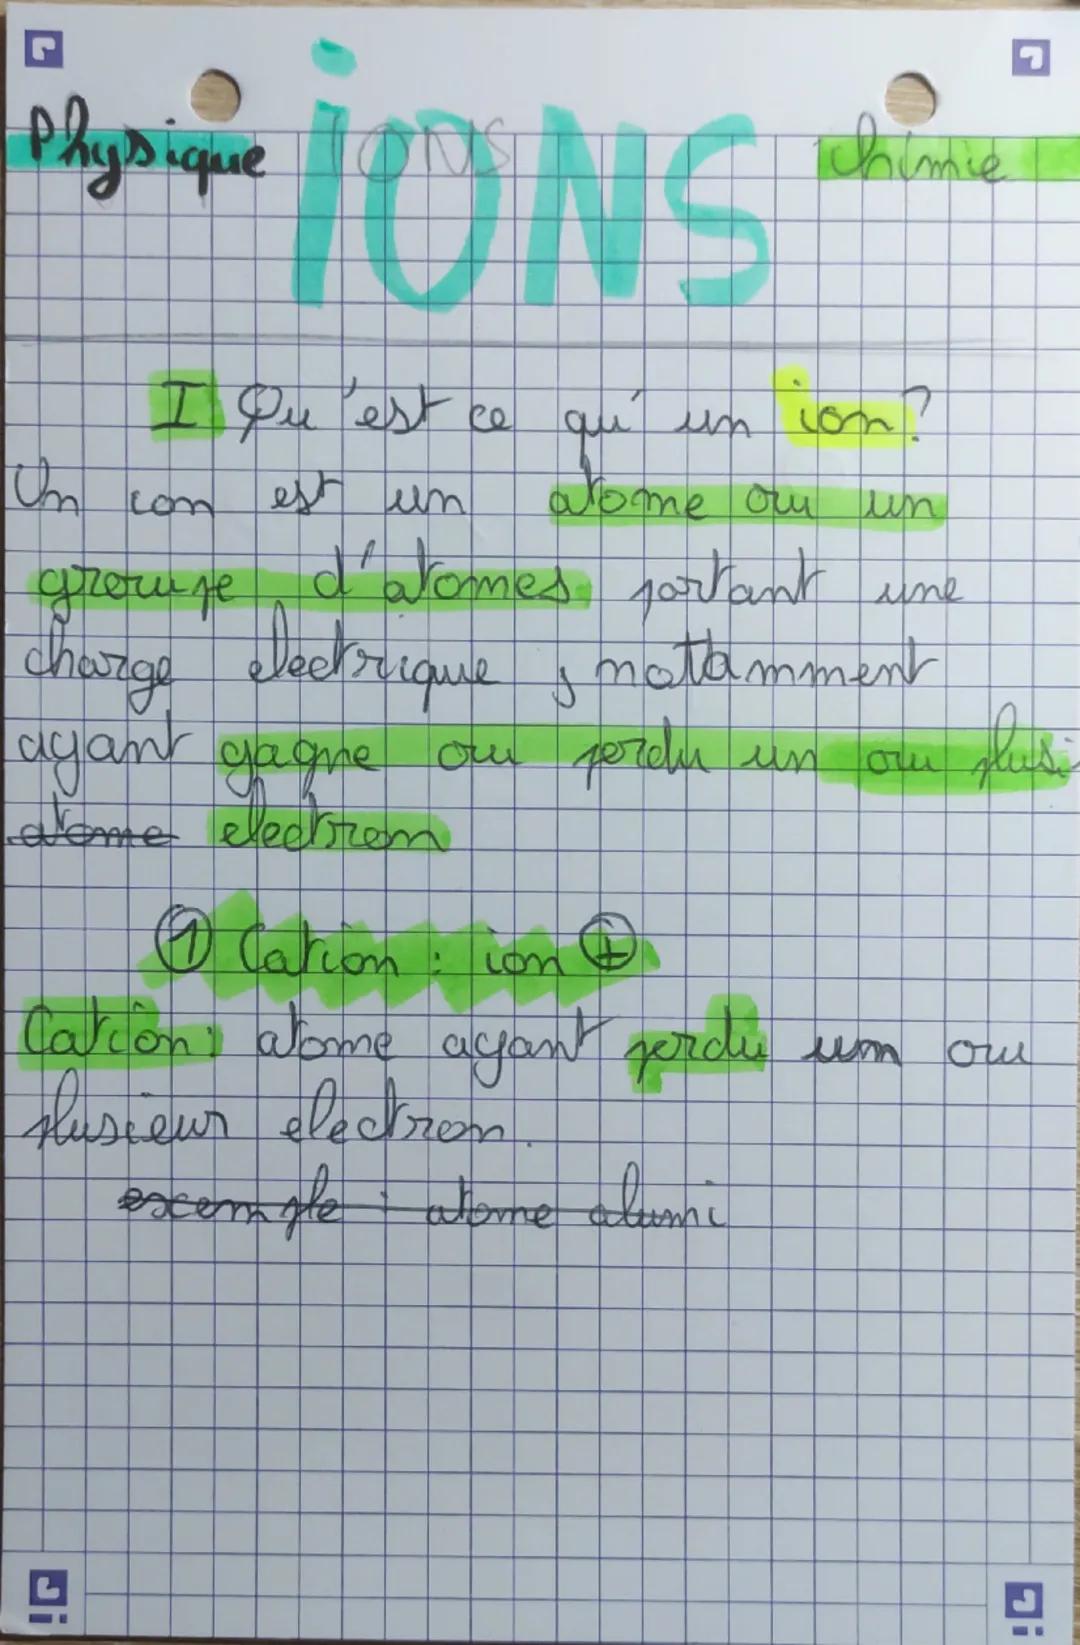 Physique iONS chimie
IONS
I Qu'est ce qu'un ion?
Un ion est un atome ou un
groupe d'atomes portant une
charge electrique, notamment
ayant gagne ou perdu un ou plusi
atome electron
① Cation : ion ⊕
Cation : atome ayant perdu um ou
plusieur electron.
exemple : atome alumi